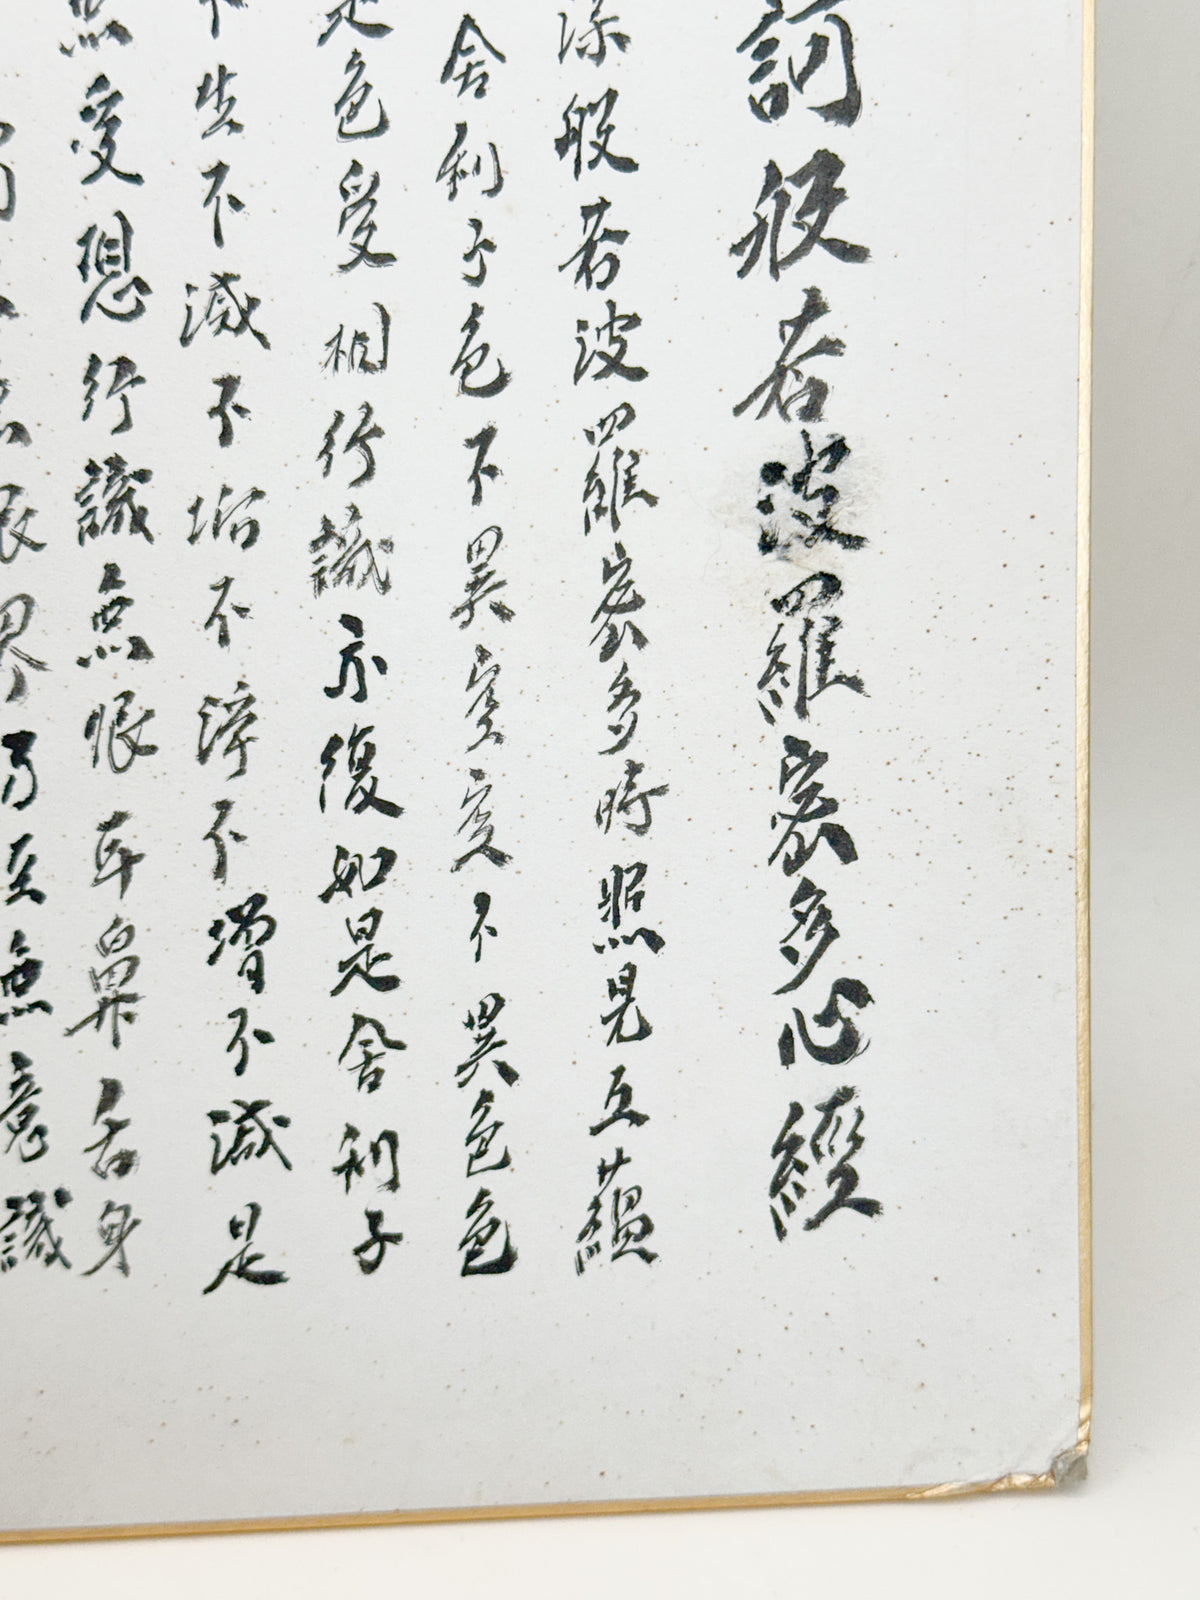 訶般若波羅蜜多心經
深般若波羅蜜多時照見五蘊
舍利子色不異空空不異色色
是色受相行識亦復如是舍利子
不生不滅不垢不淨不增不減是
無受想行識無眼耳鼻舌身
眼界乃至無意識